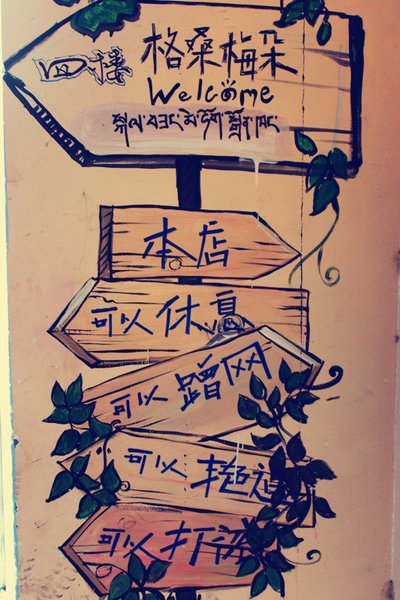 四楼 格桑梅朵
Welcome
སྐལ་བཟང་མེ་ཏོག
本店
可以休息
可以蹭网
可以
可以打